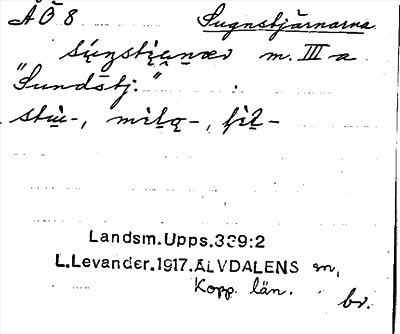 ÅÖ 8 Sugnstjärnarna
súgnstiɑnær m. III a
"Sundstj."
stu-, milą-, fil-
Landsm.Upps.339:2
L.Levander.1917.ÄLVDALENS sn,
Kopp. län.
br.